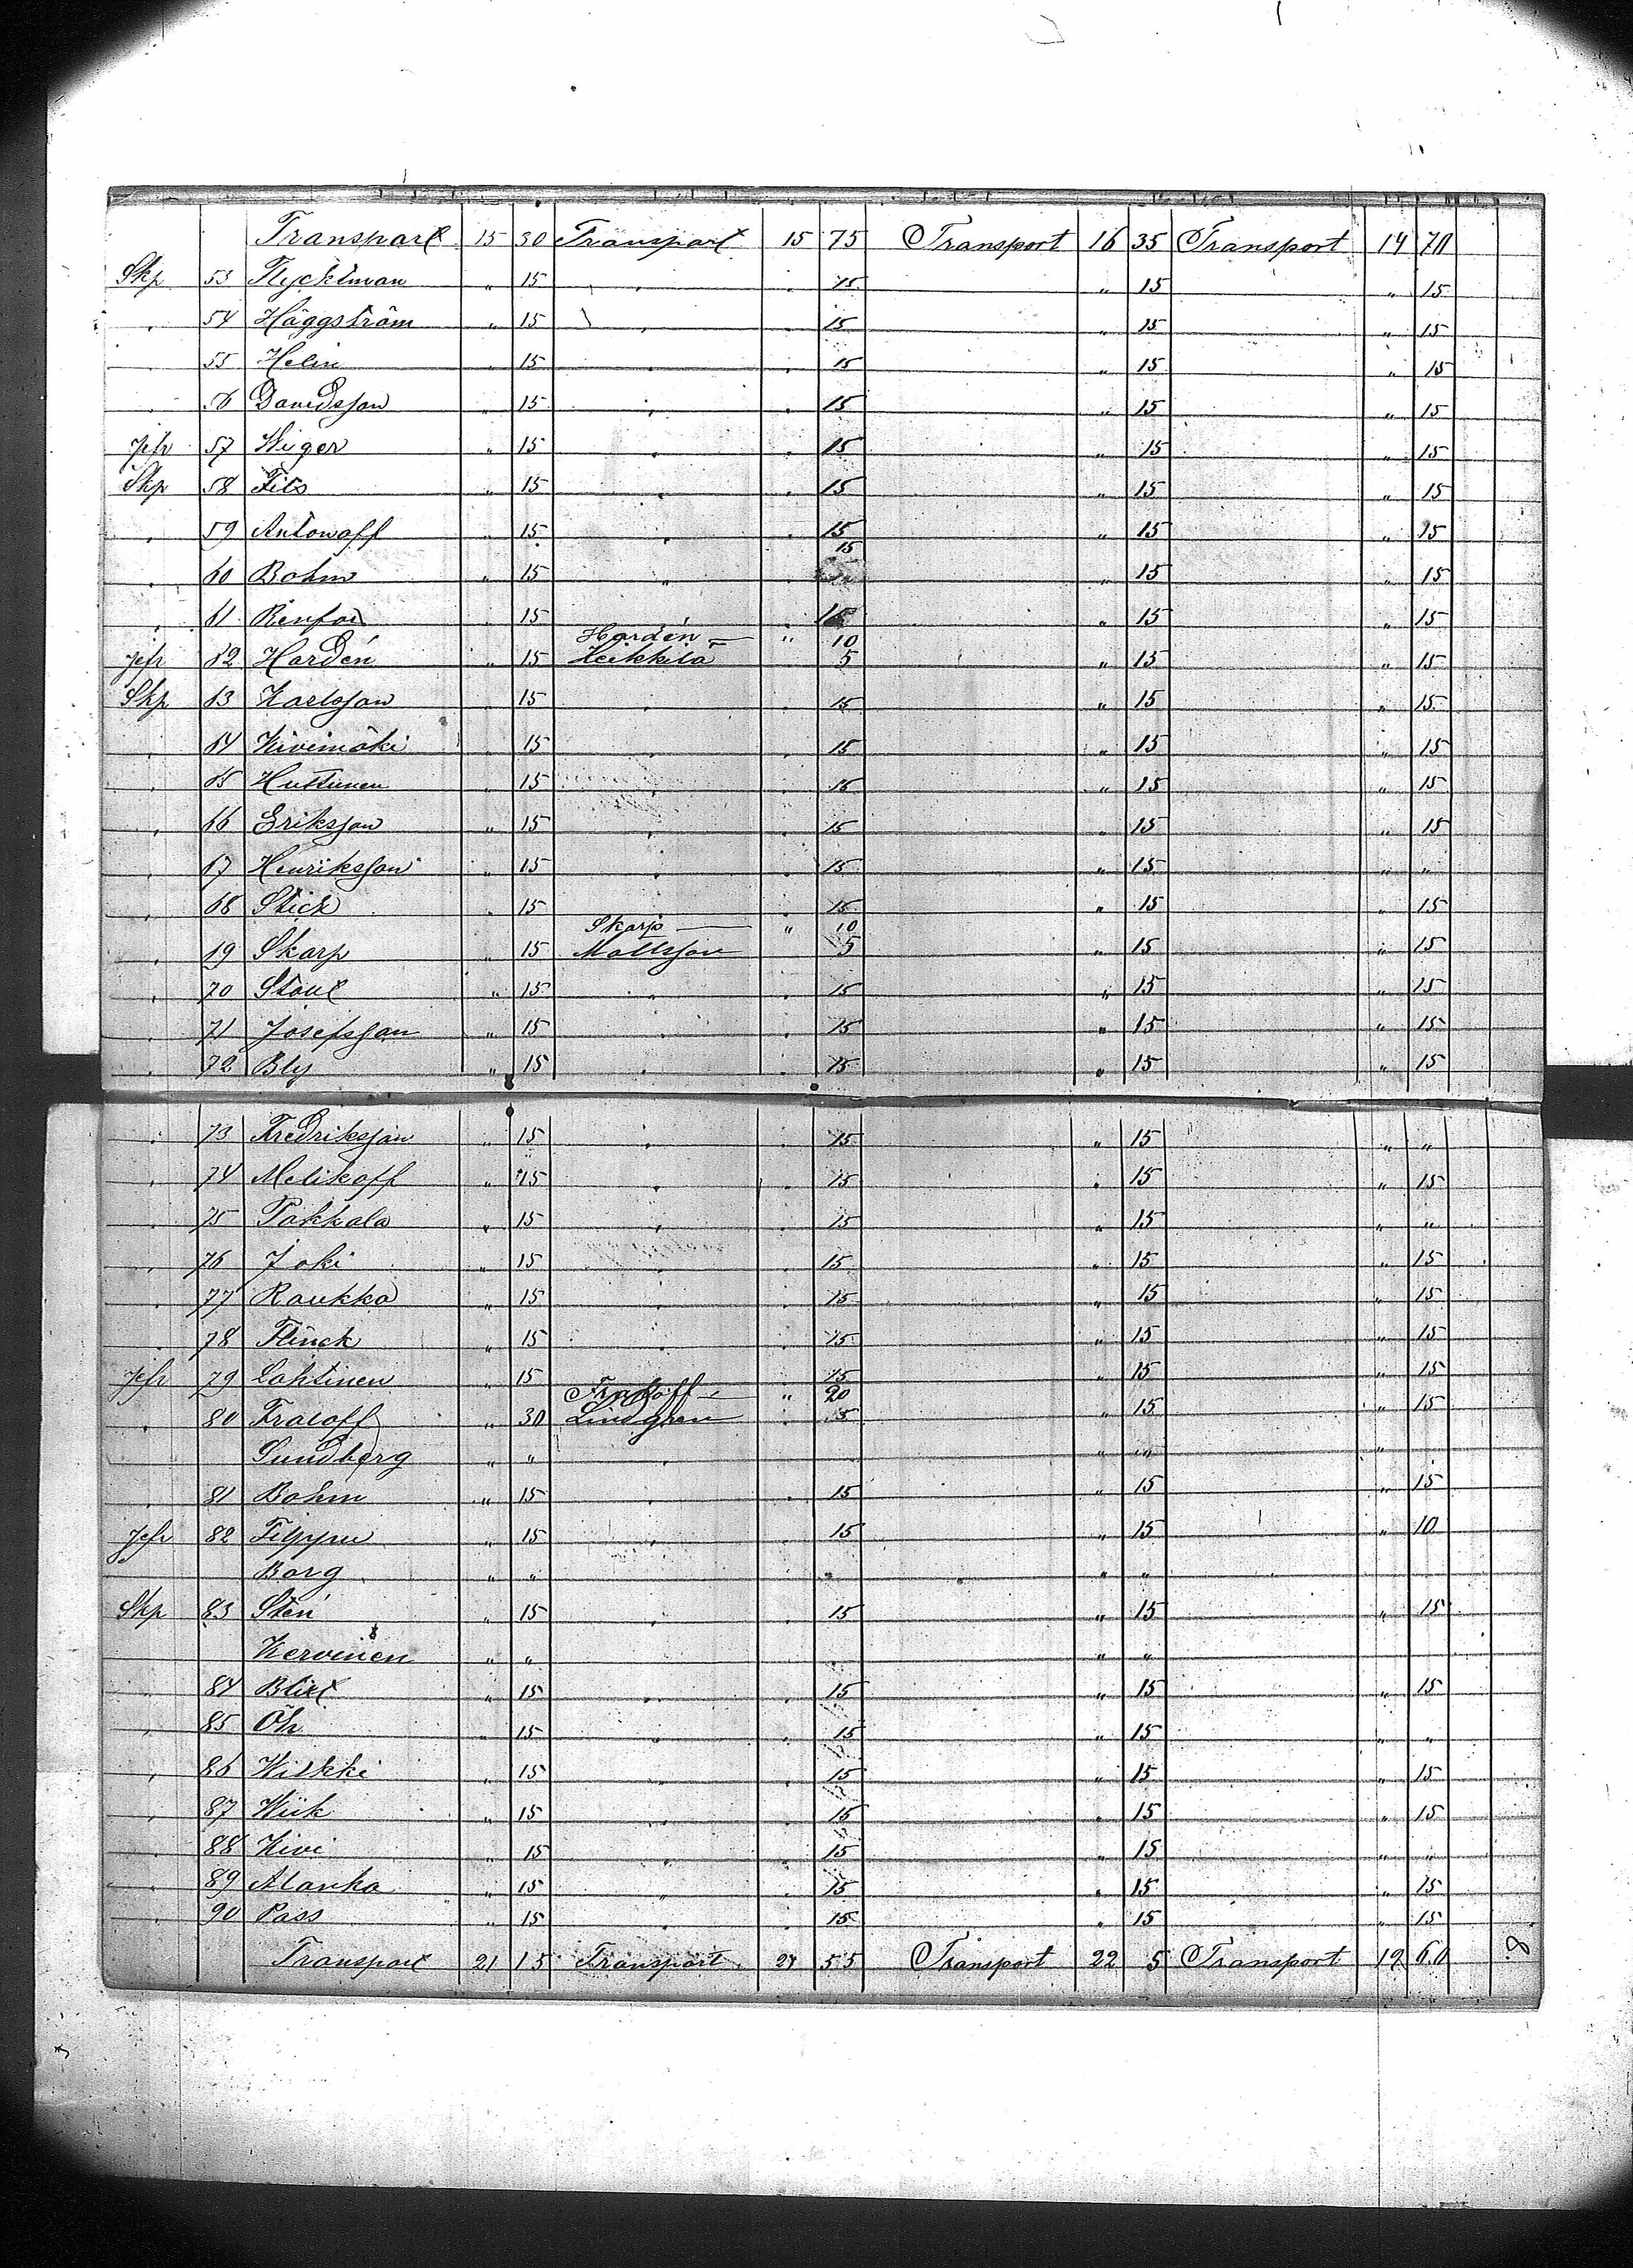 Transport 15 30 Transport 15 75 Transport 16 35 Transport 14 70
Skp 53 Flycktman " 15 " " 15 " 15 " 15
" 54 Häggström " 15 " " 15 " 15 " 15
55 Helin " 15 " " 15 " 15 " 15
56 Davidsson " 15 " " 15 " 15 " 15
Jfr 57 Wiger " 15 " " 15 " 15 " 15
Skp 58 Fils " 15 " " 15 " 15 " 15
" 59 Antonoff " 15 " " 15 " 15 " 15
" 60 Bohm " 15 " " 15 " 15 " 15
" 61 Renfor " 15 " 15 " 15 " 15
Hardén — " 10
Jfr 62 Hardén " 15 Heikkilä 5 " 15 " 15
Skp 63 Karlsson 15 " " 15 " 15 " 15
" 64 Kivimäki " 15 " " 15 " 15 " 15
" 65 Huttunen 15 " " 15 " 15 " 15
" 66 Eriksson " 15 " " 15 " 15 " 15
" 67 Henriksson " 15 " " 15 " 15 " "
" 68 Stick " 15 " 15 " 15 " 15
Skarp — " 10
" 69 Skarp " 15 Mattsson 5 " 15 " 15
" 70 Stout " 15 " " 15 " 15 " 15
" 71 Josefsson " 15 " " 15 " 15 " 15
" 72 Bly " 15 " " 15 " 15 " 15
" 73 Fredriksson " 15 " " 15 " 15 " "
" 74 Melikoff " 15 " " 15 " 15 " 15
" 75 Pakkala " 15 " " 15 " 15 " "
" 76 Joki " 15 " " 15 " 15 " 15
" 77 Raukka " 15 " " 15 " 15 " 15
" 78 Flinck " 15 " " 15 " 15 " 15
Jfr 79 Lahtinen " 15 15 " 15 " 15
— " 20
" 80 Fraloff " 30 Lindgren " 5 " 15 " 15
Sundberg " " " " " "
" 81 Bohm " 15 " " 15 " 15 " 15
Jfr 82 Filppu " 15 " 15 " 15 " 10
Borg " " " " " "
Skp 83 Stén " 15 " " 15 " 15 " 15
Kervinen " " " "
84 Blixt " 15 " " 15 " 15 " 15
" 85 Öh " 15 " 15 " 15 " "
" 86 Wilkki " 15 " 15 " 15 " 15
" 87 Wiik " 15 " 15 " 15 " 15
88 Kivi " 15 " " 15 " 15 " "
" 89 Alanka " 15 " " 15 " 15 " 15
" 90 Pass " 15 " " 15 " 15 " 15
Transport 21 15 Transport 21 55 Transport 22 5 Transport 19 60
8